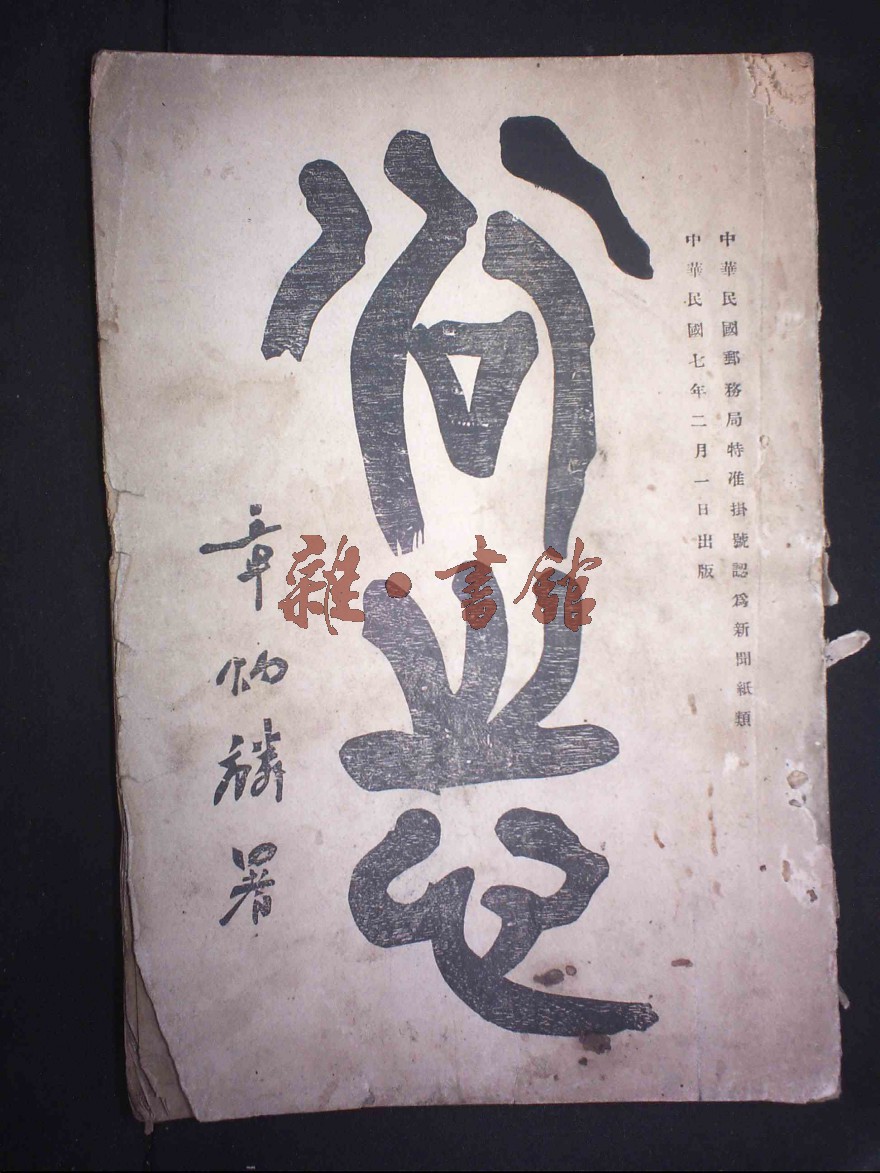 中華民國郵務局特准掛號認爲新聞紙類
中華民國七年二月一日出版
尚志
章炳麟署
雜·書館